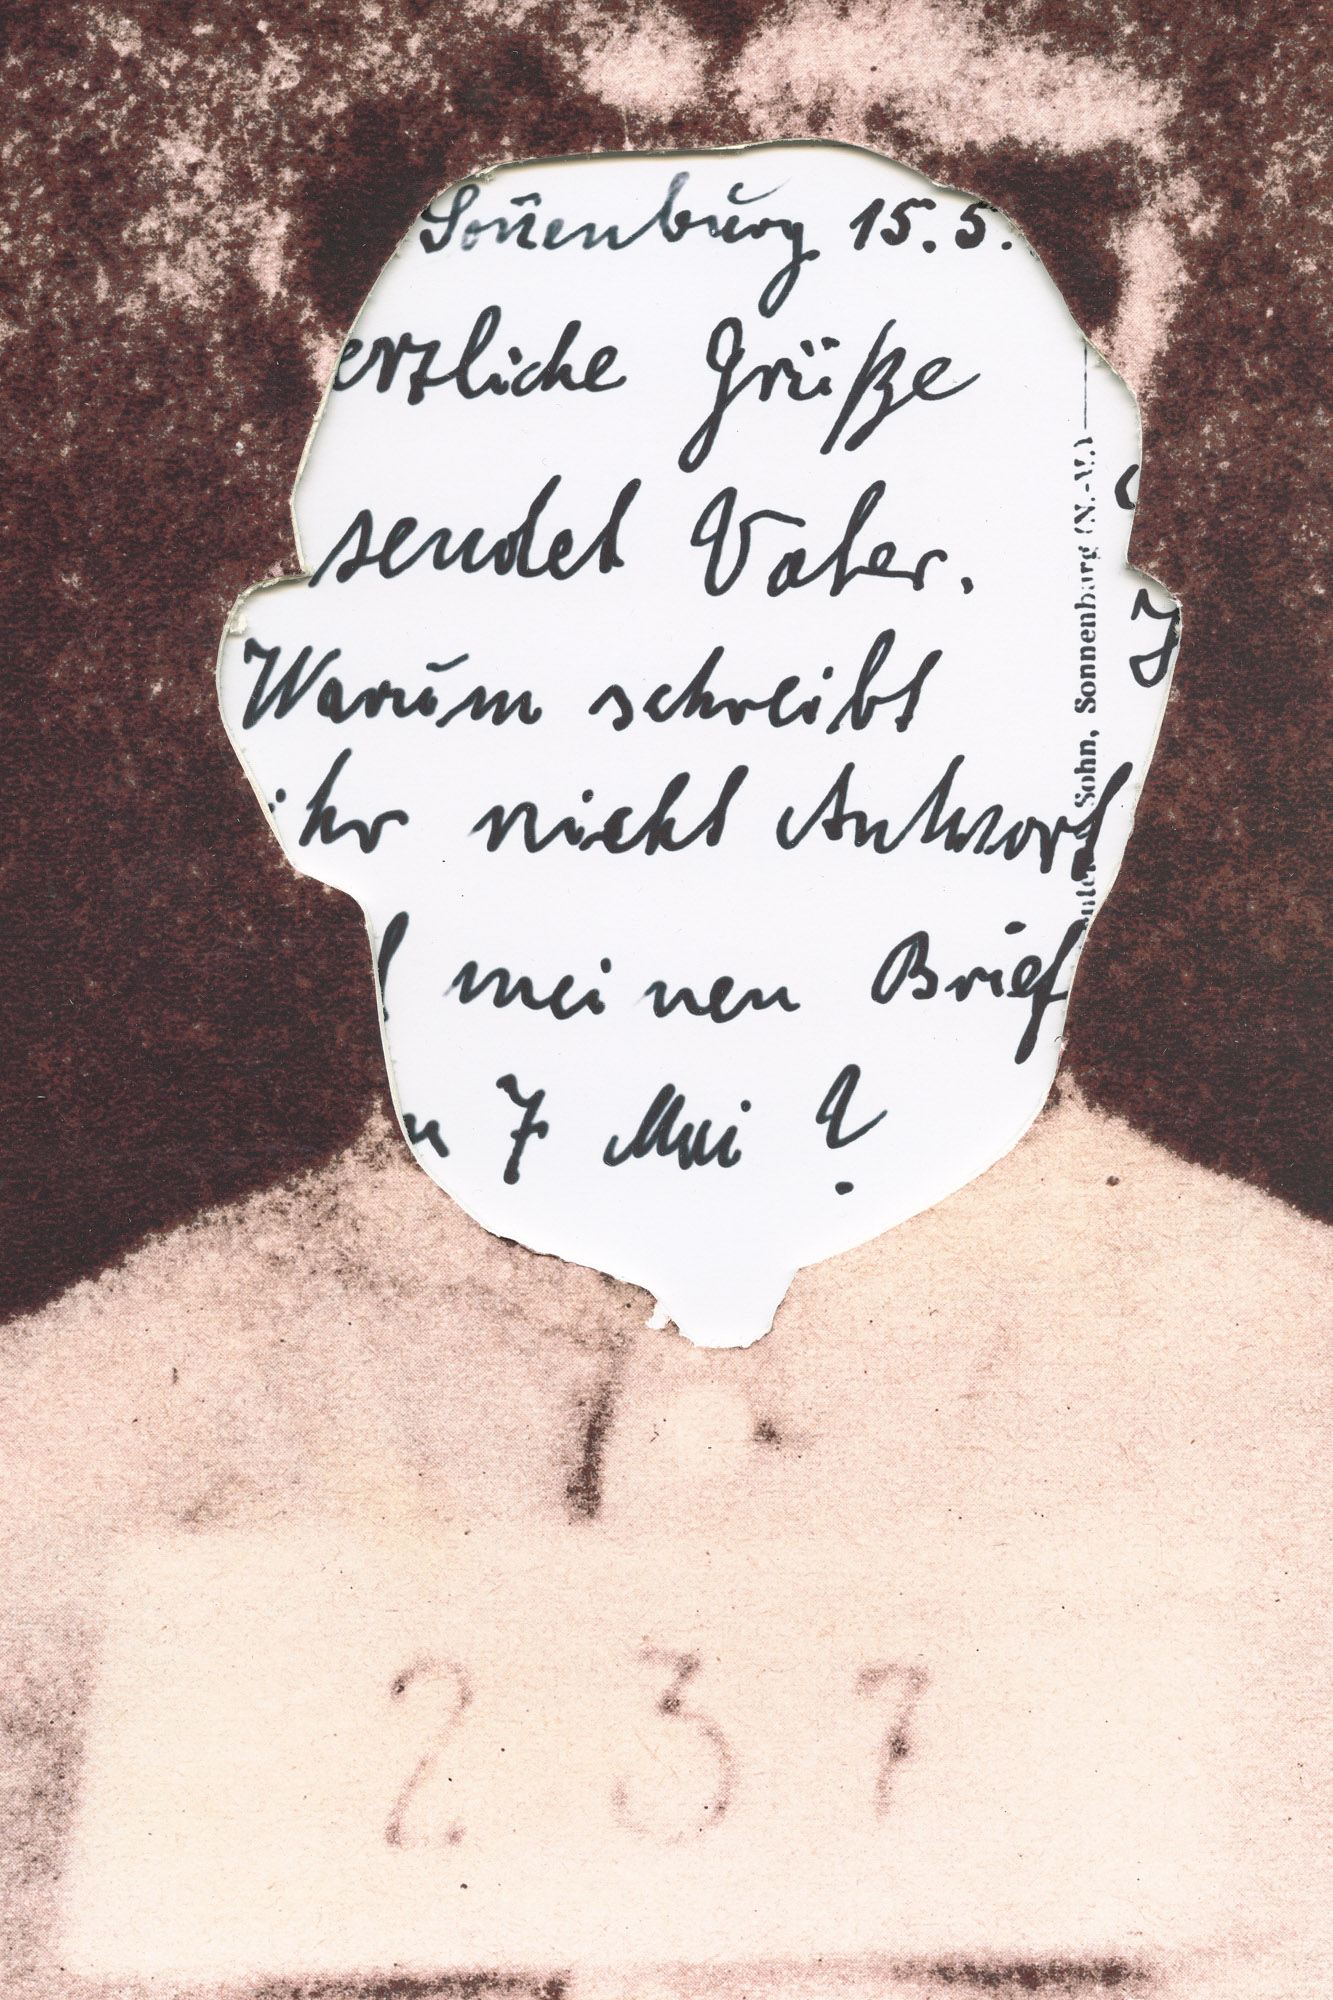 Sonnenburg 15.5.
erzliche Grüße
sendet Vater.
Warum schreibt
ihr nicht Antwort
meinen Brief
n 7 Mai?
Sohn, Sonnenburg (N.-M.)
237